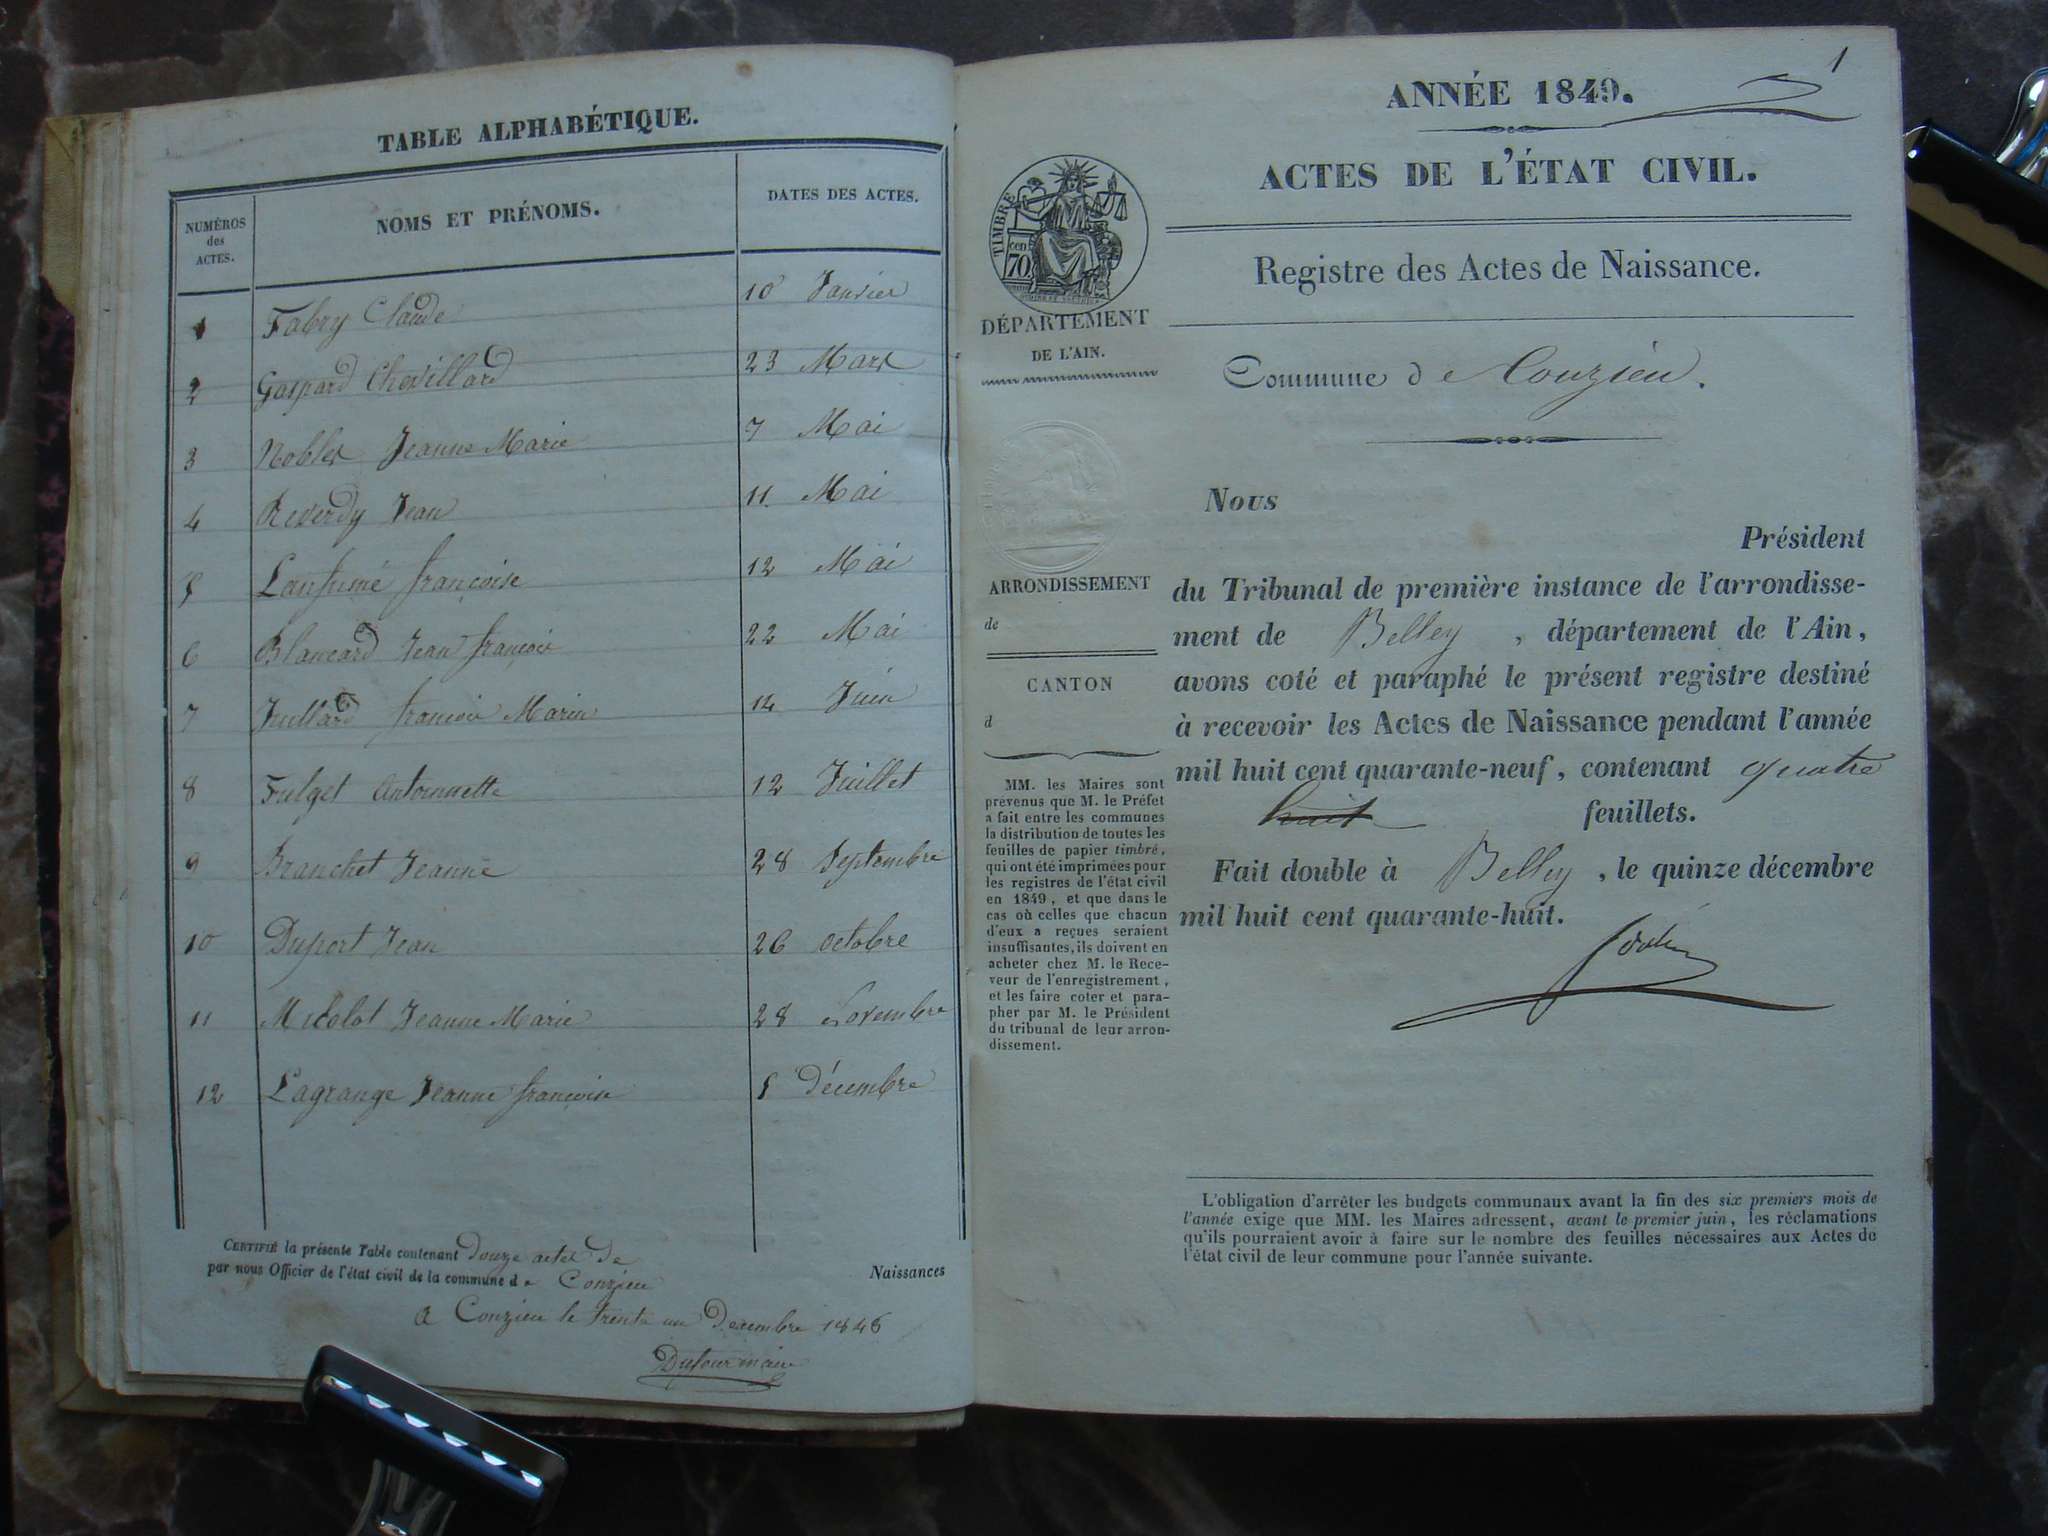 TABLE ALPHABÉTIQUE.
NUMÉROS des ACTES. NOMS ET PRÉNOMS. DATES DES ACTES.
1 Fabry Claude 10 Janvier
2 Gaspard Chevillard 23 Mars
3 Noblet Jeanne Marie 7 Mai
4 Reverdy Jean 11 Mai
5 françoise 12 Mai
6 Blancard Jean françois 22 Mai
7 Juillard françois Marin 14 Juin
8 Fulget Antoinnette 12 Juillet
9 Branchet Jeanne 28 Septembre
10 Duport Jean 26 octobre
11 Micolot Jeanne Marie 28 Novembre
12 Lagrange Jeanne françoise 5 Décembre
CERTIFIÉ la présente Table contenant Douze actes de Naissances
par nous Officier de l'état civil de la commune de Conzieu
A Conzieu le trente un Décembre 1848
Dufour maire
1
ANNÉE 1849.
ACTES DE L'ÉTAT CIVIL.
Registre des Actes de Naissance.
Commune de Conzieu.
TIMBRE
cen
70
DÉPARTEMENT
DE L'AIN.
ARRONDISSEMENT
de
CANTON
d
MM. les Maires sont
prévenus que M. le Préfet
a fait entre les communes
la distribution de toutes les
feuilles de papier timbré,
qui ont été imprimées pour
les registres de l'état civil
en 1849, et que dans le
cas où celles que chacun
d'eux a reçues seraient
insuffisantes, ils doivent en
acheter chez M. le Rece-
veur de l'enregistrement,
et les faire coter et para-
pher par M. le Président
du tribunal de leur arron-
dissement.
Nous
Président
du Tribunal de première instance de l'arrondisse-
ment de Belley, département de l'Ain,
avons coté et paraphé le présent registre destiné
à recevoir les Actes de Naissance pendant l'année
mil huit cent quarante-neuf, contenant quatre
huit feuillets.
Fait double à Belley, le quinze décembre
mil huit cent quarante-huit.
L'obligation d'arrêter les budgets communaux avant la fin des six premiers mois de
l'année exige que MM. les Maires adressent, avant le premier juin, les réclamations
qu'ils pourraient avoir à faire sur le nombre des feuilles nécessaires aux Actes de
l'état civil de leur commune pour l'année suivante.